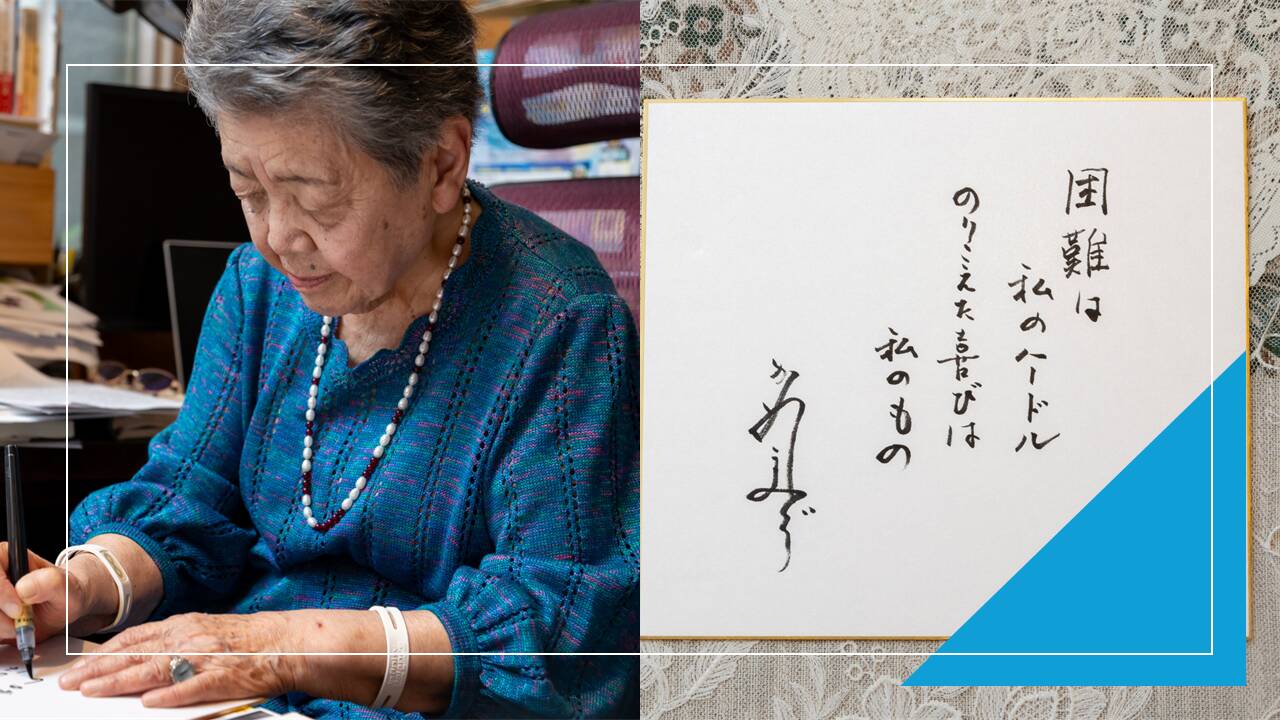 困難は
私のハードル
のりこえた喜びは
私のもの